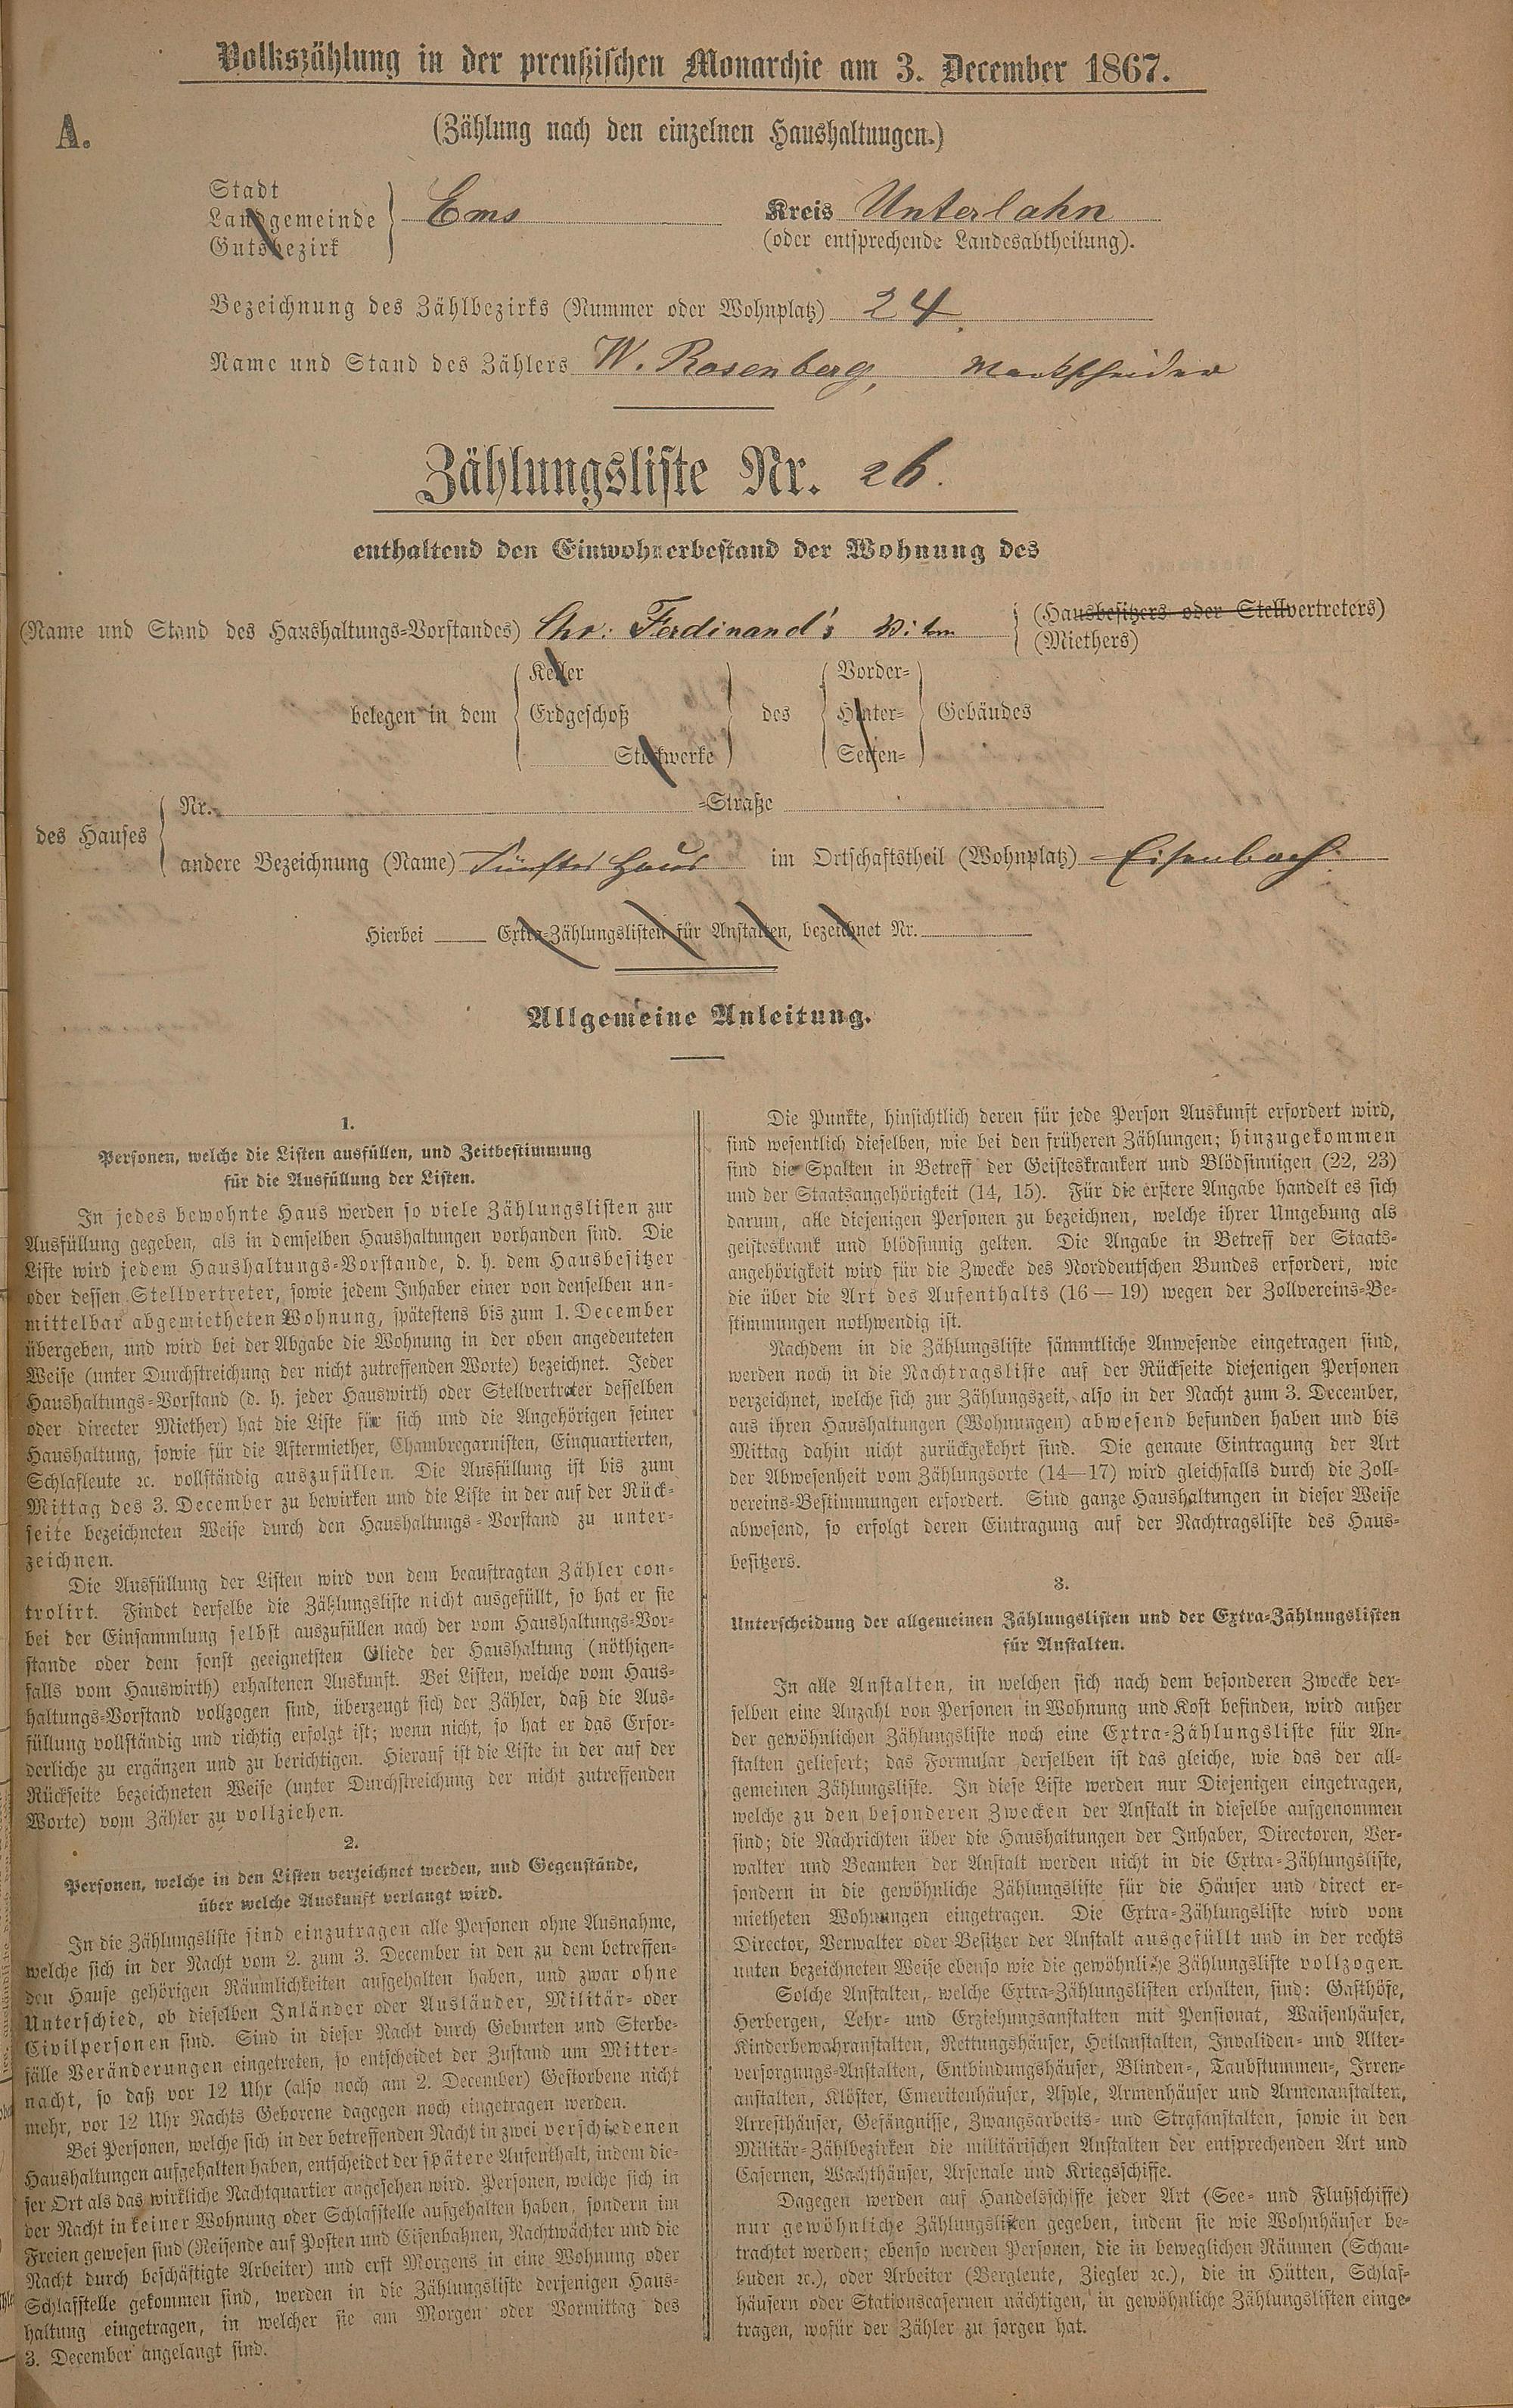 Volkszählung in der preußischen Monarchie am 3. December 1867.
A.
(Zählung nach den einzelnen Haushaltungen.)
Stadt
Landgemeinde
Gutsbezirk
Ems
Kreis Unterlahn
(oder entsprechende Landesabtheilung).
Bezeichnung des Zählbezirks (Nummer oder Wohnplatz) 24.
Name und Stand des Zählers W. Rosenberg, Markscheider
Zählungsliste Nr. 26.
enthaltend den Einwohnerbestand der Wohnung des
(Name und Stand des Haushaltungs-Vorstandes) Chr: Ferdinand's
(Hausbesitzers oder Stellvertreters)
(Miethers)
Keller
Erdgeschoß
Stockwerke
belegen in dem
des
Vorder-
Hinter-
Seiten-
Gebäudes
des Hauses
Nr. -Straße
andere Bezeichnung (Name) Fünftes Haus im Ortschaftstheil (Wohnplatz) Eisenbach.
Hierbei Extra-Zählungslisten für Anstalten, bezeichnet Nr.
Allgemeine Anleitung.
1.
Personen, welche die Listen ausfüllen, und Zeitbestimmung
für die Ausfüllung der Listen.
In jedes bewohnte Haus werden so viele Zählungslisten zur
Ausfüllung gegeben, als in demselben Haushaltungen vorhanden sind. Die
Liste wird jedem Haushaltungs-Vorstande, d. h. dem Hausbesitzer
oder dessen Stellvertreter, sowie jedem Inhaber einer von denselben un-
mittelbar abgemietheten Wohnung, spätestens bis zum 1. December
übergeben, und wird bei der Abgabe die Wohnung in der oben angedeuteten
Weise (unter Durchstreichung der nicht zutreffenden Worte) bezeichnet. Jeder
Haushaltungs-Vorstand (d. h. jeder Hauswirth oder Stellvertreter desselben
oder directer Miether) hat die Liste für sich und die Angehörigen seiner
Haushaltung, sowie für die Aftermiether, Chambregarnisten, Einquartierten,
Schlafleute ꝛc. vollständig auszufüllen. Die Ausfüllung ist bis zum
Mittag des 3. December zu bewirken und die Liste in der auf der Rück-
seite bezeichneten Weise durch den Haushaltungs-Vorstand zu unter-
zeichnen.
Die Ausfüllung der Listen wird von dem beauftragten Zähler con-
trolirt. Findet derselbe die Zählungsliste nicht ausgefüllt, so hat er sie
bei der Einsammlung selbst auszufüllen nach der vom Haushaltungs-Vor-
stande oder dem sonst geeignetsten Gliede der Haushaltung (nöthigen-
falls vom Hauswirth) erhaltenen Auskunft. Bei Listen, welche vom Haus-
haltungs-Vorstand vollzogen sind, überzeugt sich der Zähler, daß die Aus-
füllung vollständig und richtig erfolgt ist; wenn nicht, so hat er das Erfor-
derliche zu ergänzen und zu berichtigen. Hierauf ist die Liste in der auf der
Rückseite bezeichneten Weise (unter Durchstreichung der nicht zutreffenden
Worte) vom Zähler zu vollziehen.
2.
Personen, welche in den Listen verzeichnet werden, und Gegenstände,
über welche Auskunft verlangt wird.
In die Zählungsliste sind einzutragen alle Personen ohne Ausnahme,
welche sich in der Nacht vom 2. zum 3. December in den zu dem betreffen-
den Hause gehörigen Räumlichkeiten aufgehalten haben, und zwar ohne
Unterschied, ob dieselben Inländer oder Ausländer, Militär- oder
Civilpersonen sind. Sind in dieser Nacht durch Geburten und Sterbe-
fälle Veränderungen eingetreten, so entscheidet der Zustand um Mitter-
nacht, so daß vor 12 Uhr (also noch am 2. December) Gestorbene nicht
mehr, vor 12 Uhr Nachts Geborene dagegen noch eingetragen werden.
Bei Personen, welche sich in der betreffenden Nacht in zwei verschiedenen
Haushaltungen aufgehalten haben, entscheidet der spätere Aufenthalt, indem die-
ser Ort als das wirkliche Nachtquartier angesehen wird. Personen, welche sich in
der Nacht in keiner Wohnung oder Schlafstelle aufgehalten haben, sondern im
Freien gewesen sind (Reisende auf Posten und Eisenbahnen, Nachtwächter und die
Nacht durch beschäftigte Arbeiter) und erst Morgens in eine Wohnung oder
Schlafstelle gekommen sind, werden in die Zählungsliste derjenigen Haus-
haltung eingetragen, in welcher sie am Morgen oder Vormittag des
3. December angelangt sind.
Die Punkte, hinsichtlich deren für jede Person Auskunft erfordert wird,
sind wesentlich dieselben, wie bei den früheren Zählungen; hinzugekommen
sind die Spalten in Betreff der Geisteskranken und Blödsinnigen (22, 23)
und der Staatsangehörigkeit (14, 15). Für die erstere Angabe handelt es sich
darum, alle diejenigen Personen zu bezeichnen, welche ihrer Umgebung als
geisteskrank und blödsinnig gelten. Die Angabe in Betreff der Staats-
angehörigkeit wird für die Zwecke des Norddeutschen Bundes erfordert, wie
die über die Art des Aufenthalts (16—19) wegen der Zollvereins-Be-
stimmungen nothwendig ist.
Nachdem in die Zählungsliste sämmtliche Anwesende eingetragen sind,
werden noch in die Nachtragsliste auf der Rückseite diejenigen Personen
verzeichnet, welche sich zur Zählungszeit, also in der Nacht zum 3. December,
aus ihren Haushaltungen (Wohnungen) abwesend befunden haben und bis
Mittag dahin nicht zurückgekehrt sind. Die genaue Eintragung der Art
der Abwesenheit vom Zählungsorte (14—17) wird gleichfalls durch die Zoll-
vereins-Bestimmungen erfordert. Sind ganze Haushaltungen in dieser Weise
abwesend, so erfolgt deren Eintragung auf der Nachtragsliste des Haus-
besitzers.
3.
Unterscheidung der allgemeinen Zählungslisten und der Extra-Zählungslisten
für Anstalten.
In alle Anstalten, in welchen sich nach dem besonderen Zwecke der-
selben eine Anzahl von Personen in Wohnung und Kost befinden, wird außer
der gewöhnlichen Zählungsliste noch eine Extra-Zählungsliste für An-
stalten geliefert; das Formular derselben ist das gleiche, wie das der all-
gemeinen Zählungsliste. In diese Liste werden nur Diejenigen eingetragen,
welche zu den besonderen Zwecken der Anstalt in dieselbe aufgenommen
sind; die Nachrichten über die Haushaltungen der Inhaber, Directoren, Ver-
walter und Beamten der Anstalt werden nicht in die Extra-Zählungsliste,
sondern in die gewöhnliche Zählungsliste für die Häuser und direct er-
mietheten Wohnungen eingetragen. Die Extra-Zählungsliste wird vom
Director, Verwalter oder Besitzer der Anstalt ausgefüllt und in der rechts
unten bezeichneten Weise ebenso wie die gewöhnliche Zählungsliste vollzogen.
Solche Anstalten, welche Extra-Zählungslisten erhalten, sind: Gasthöfe,
Herbergen, Lehr- und Erziehungsanstalten mit Pensionat, Waisenhäuser,
Kinderbewahranstalten, Rettungshäuser, Heilanstalten, Invaliden- und Alter-
versorgungs-Anstalten, Entbindungshäuser, Blinden-, Taubstummen-, Irren-
anstalten, Klöster, Emeritenhäuser, Asyle, Armenhäuser und Armenanstalten,
Arresthäuser, Gefängnisse, Zwangsarbeits- und Strafanstalten, sowie in den
Militär-Zählbezirken die militärischen Anstalten der entsprechenden Art und
Casernen, Wachthäuser, Arsenale und Kriegsschiffe.
Dagegen werden auf Handelsschiffe jeder Art (See- und Flußschiffe)
nur gewöhnliche Zählungslisten gegeben, indem sie wie Wohnhäuser be-
trachtet werden; ebenso werden Personen, die in beweglichen Räumen (Schau-
buden ꝛc.), oder Arbeiter (Bergleute, Ziegler ꝛc.), die in Hütten, Schlaf-
häusern oder Stationscasernen nächtigen, in gewöhnliche Zählungslisten einge-
tragen, wofür der Zähler zu sorgen hat.